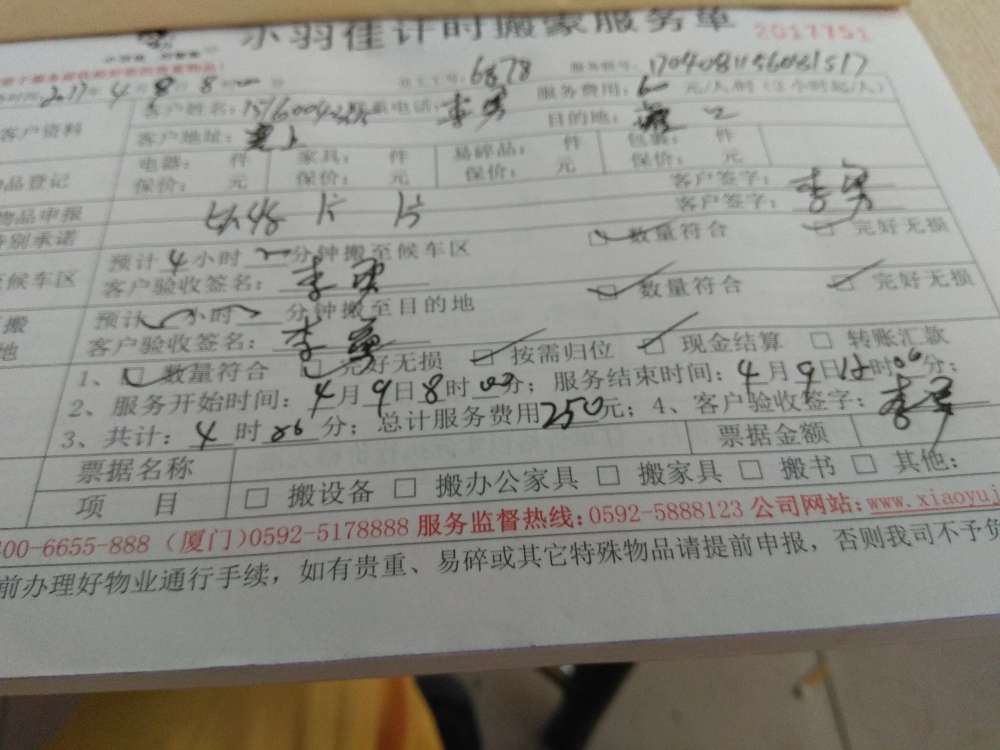 小羽佳计时搬家服务单 2017751
2017年4月8 8 员工工号：6878 服务编号：170408115608151​7
客户资料 客户姓名： 联系电话： 服务费用：60元/人/时（2小时起/人）
客户地址： 目的地：
品登记 电器： 件 家具： 件 易碎品： 件 包装： 件
保价： 元 保价： 元 保价： 元 保价： 元
物品申报 客户签字：李
特别承诺 客户签字：
候车区 预计4小时 分钟搬至候车区 数量符合 完好无损
客户验收签名：李
搬 预计 小时 分钟搬至目的地 数量符合 完好无损
地 客户验收签名：李
1、□ 数量符合 □ 完好无损 □ 按需归位 □ 现金结算 □ 转账汇款
2、服务开始时间：4月9日8时00分；服务结束时间：4月9日12时00分；
3、共计：4时 分；总计服务费用250元；4、客户验收签字：李
票据名称 票据金额
项 目 □ 搬设备 □ 搬办公家具 □ 搬家具 □ 搬书 □ 其他：
00-6655-888（厦门）0592-5178888 服务监督热线：0592-5888123 公司网站：www.xiaoyuj
前办理好物业通行手续，如有贵重、易碎或其它特殊物品请提前申报，否则我司不予负